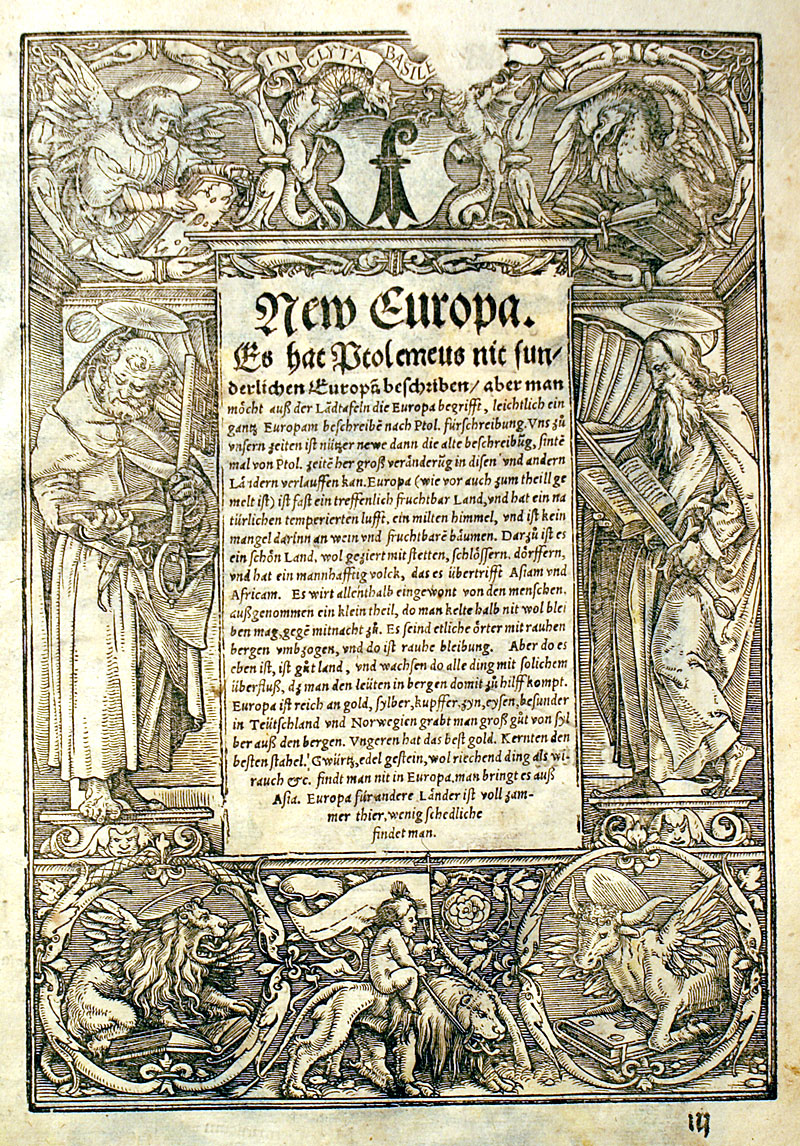 IN CLYTA BASILE
New Europa.
Es hat Ptolemeus nit sun⸗
derlichen Europã beschriben / aber man
möcht auß der Lãdtafeln die Europa begrifft, leichtlich ein
gantz Europam beschreibẽ nach Ptol. fürschreibung. Vns zů
vnsern zeiten ist nützer newe dann die alte beschreibũg, sintẽ
mal von Ptol. zeitẽ her groß veränderũg in disen vnd andern
Ländern verlauffen kan. Europa (wie vor auch zum theill ge
melt ist) ist fast ein treffenlich fruchtbar Land, vnd hat ein na
türlichen temperierten lufft, ein milten himmel, vnd ist kein
mangel darinn an wein vnd fruchtbarẽ bäumen. Darzů ist es
ein schön Land, wol geziert mit stetten, schlössern, dörffern,
vnd hat ein mannhafftig volck, das es übertrifft Asiam vnd
Africam. Es wirt allenthalb eingewont von den menschen,
außgenommen ein klein theil, do man kelte halb nit wol blei
ben mag, gegẽ mitnacht zů. Es seind etliche örter mit rauhen
bergen vmbzogen, vnd do ist rauhe bleibung. Aber do es
eben ist, ist gůt land, vnd wachsen do alle ding mit solichem
überfluß, dz man den leüten in bergen domit zů hilff kompt.
Europa ist reich an gold, sylber, kupffer, zyn, eysen, besunder
in Teütschland vnd Norwegien grabt man groß gůt von syl
ber auß den bergen. Vngeren hat das best gold. Kernten den
besten stahel. Gwürtz, edel gestein, wol riechend ding als wi⸗
rauch &c. findt man nit in Europa, man bringt es auß
Asia. Europa für andere Länder ist voll zam⸗
mer thier, wenig schedliche
findet man.
iij